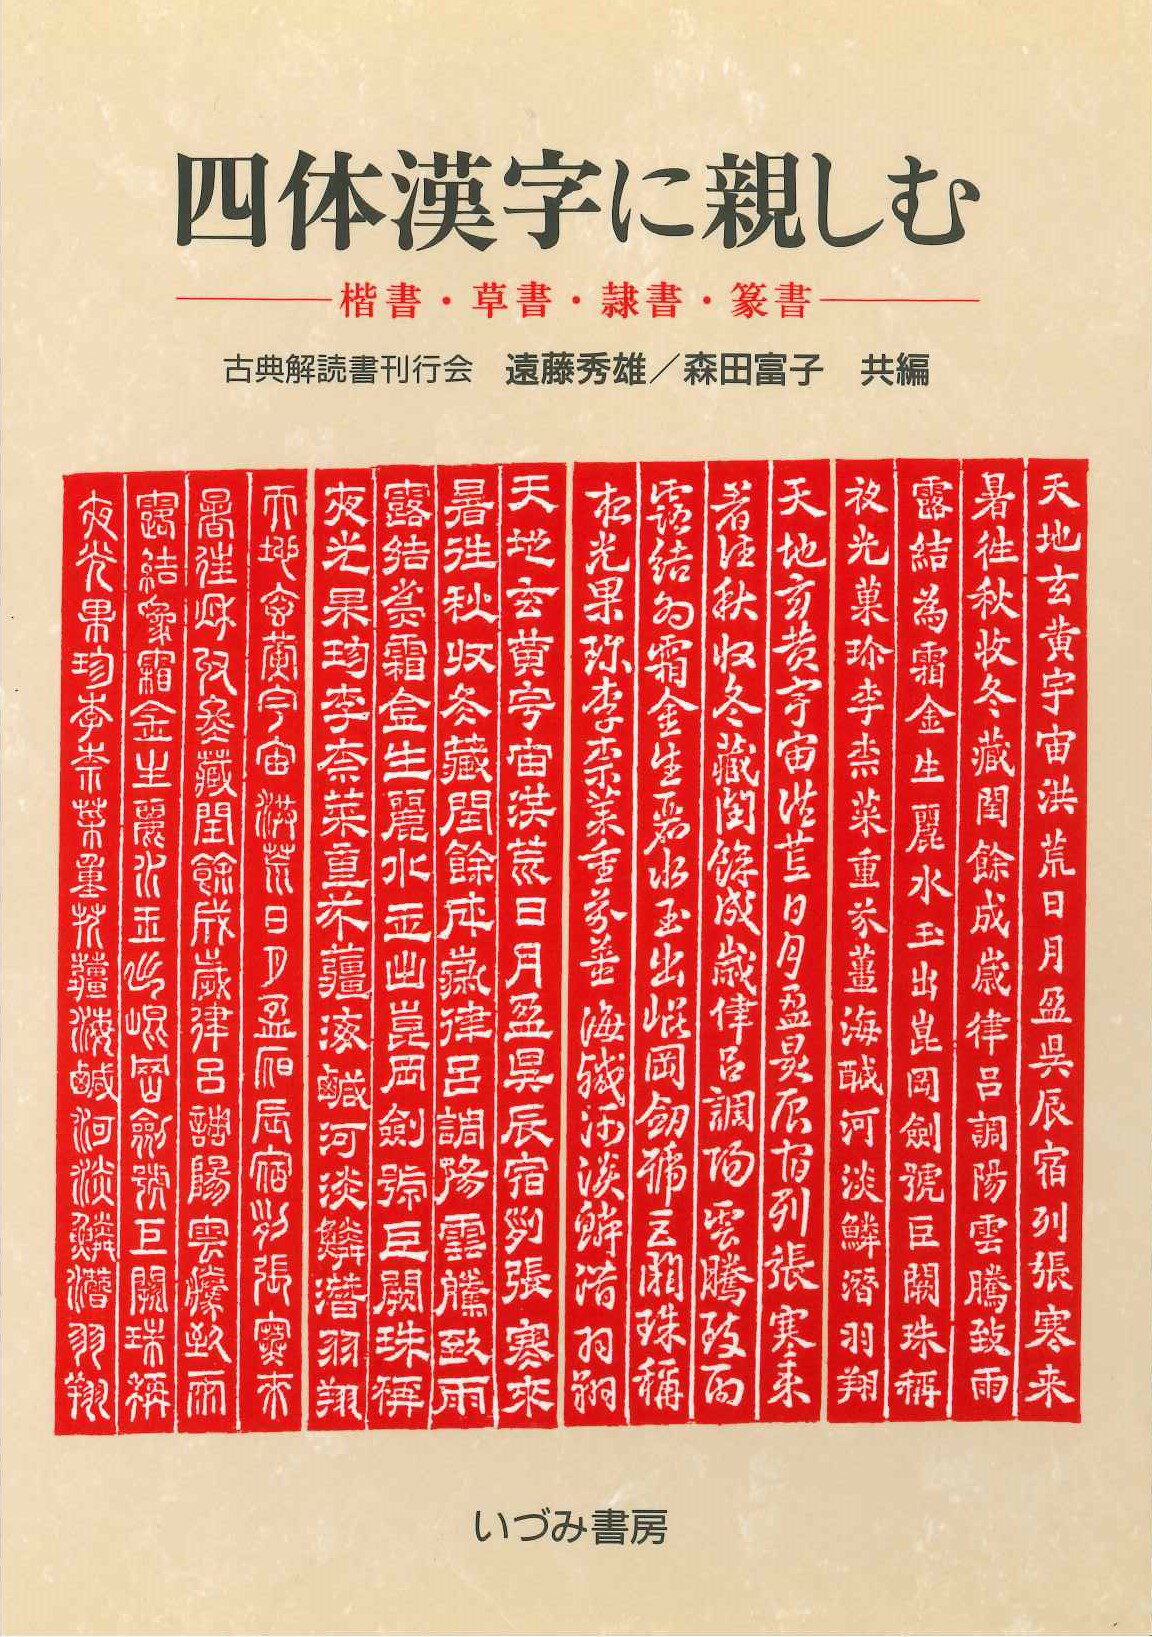 四体漢字に親しむ
楷書・草書・隷書・篆書
古典解読書刊行会　遠藤秀雄／森田富子　共編
天地玄黄宇宙洪荒日月盈昃辰宿列張寒来
暑往秋收冬藏閏餘成歳律呂調陽雲騰致雨
露結為霜金生麗水玉出崑岡劍號巨闕珠稱
夜光菓珍李柰菜重芥薑海醎河淡鱗潜羽翔
天地玄黄宇宙洪荒日月盈昃辰宿列張寒来
暑往秋収冬藏閏餘成歳律呂調陽雲騰致雨
露結為霜金生麗水玉出崐岡劒號巨闕珠稱
夜光果珎李柰菜重芥薑海鹹河淡鱗潜羽翔
天地玄黄宇宙洪荒日月盈昃辰宿列張寒來
暑往秋收冬藏閏餘成歳律呂調陽雲騰致雨
露結為霜金生麗水玉出崑岡劍號巨闕珠稱
夜光果珍李柰菜重芥薑海鹹河淡鱗潜羽翔
天地玄黄宇宙洪荒日月盈昃辰宿列張寒來
暑往秋收冬藏閏餘成歳律呂調陽雲騰致雨
露結為霜金生麗水玉出崐岡劍號巨闕珠稱
夜光果珍李柰菜重芥薑海鹹河淡鱗潜羽翔
いづみ書房